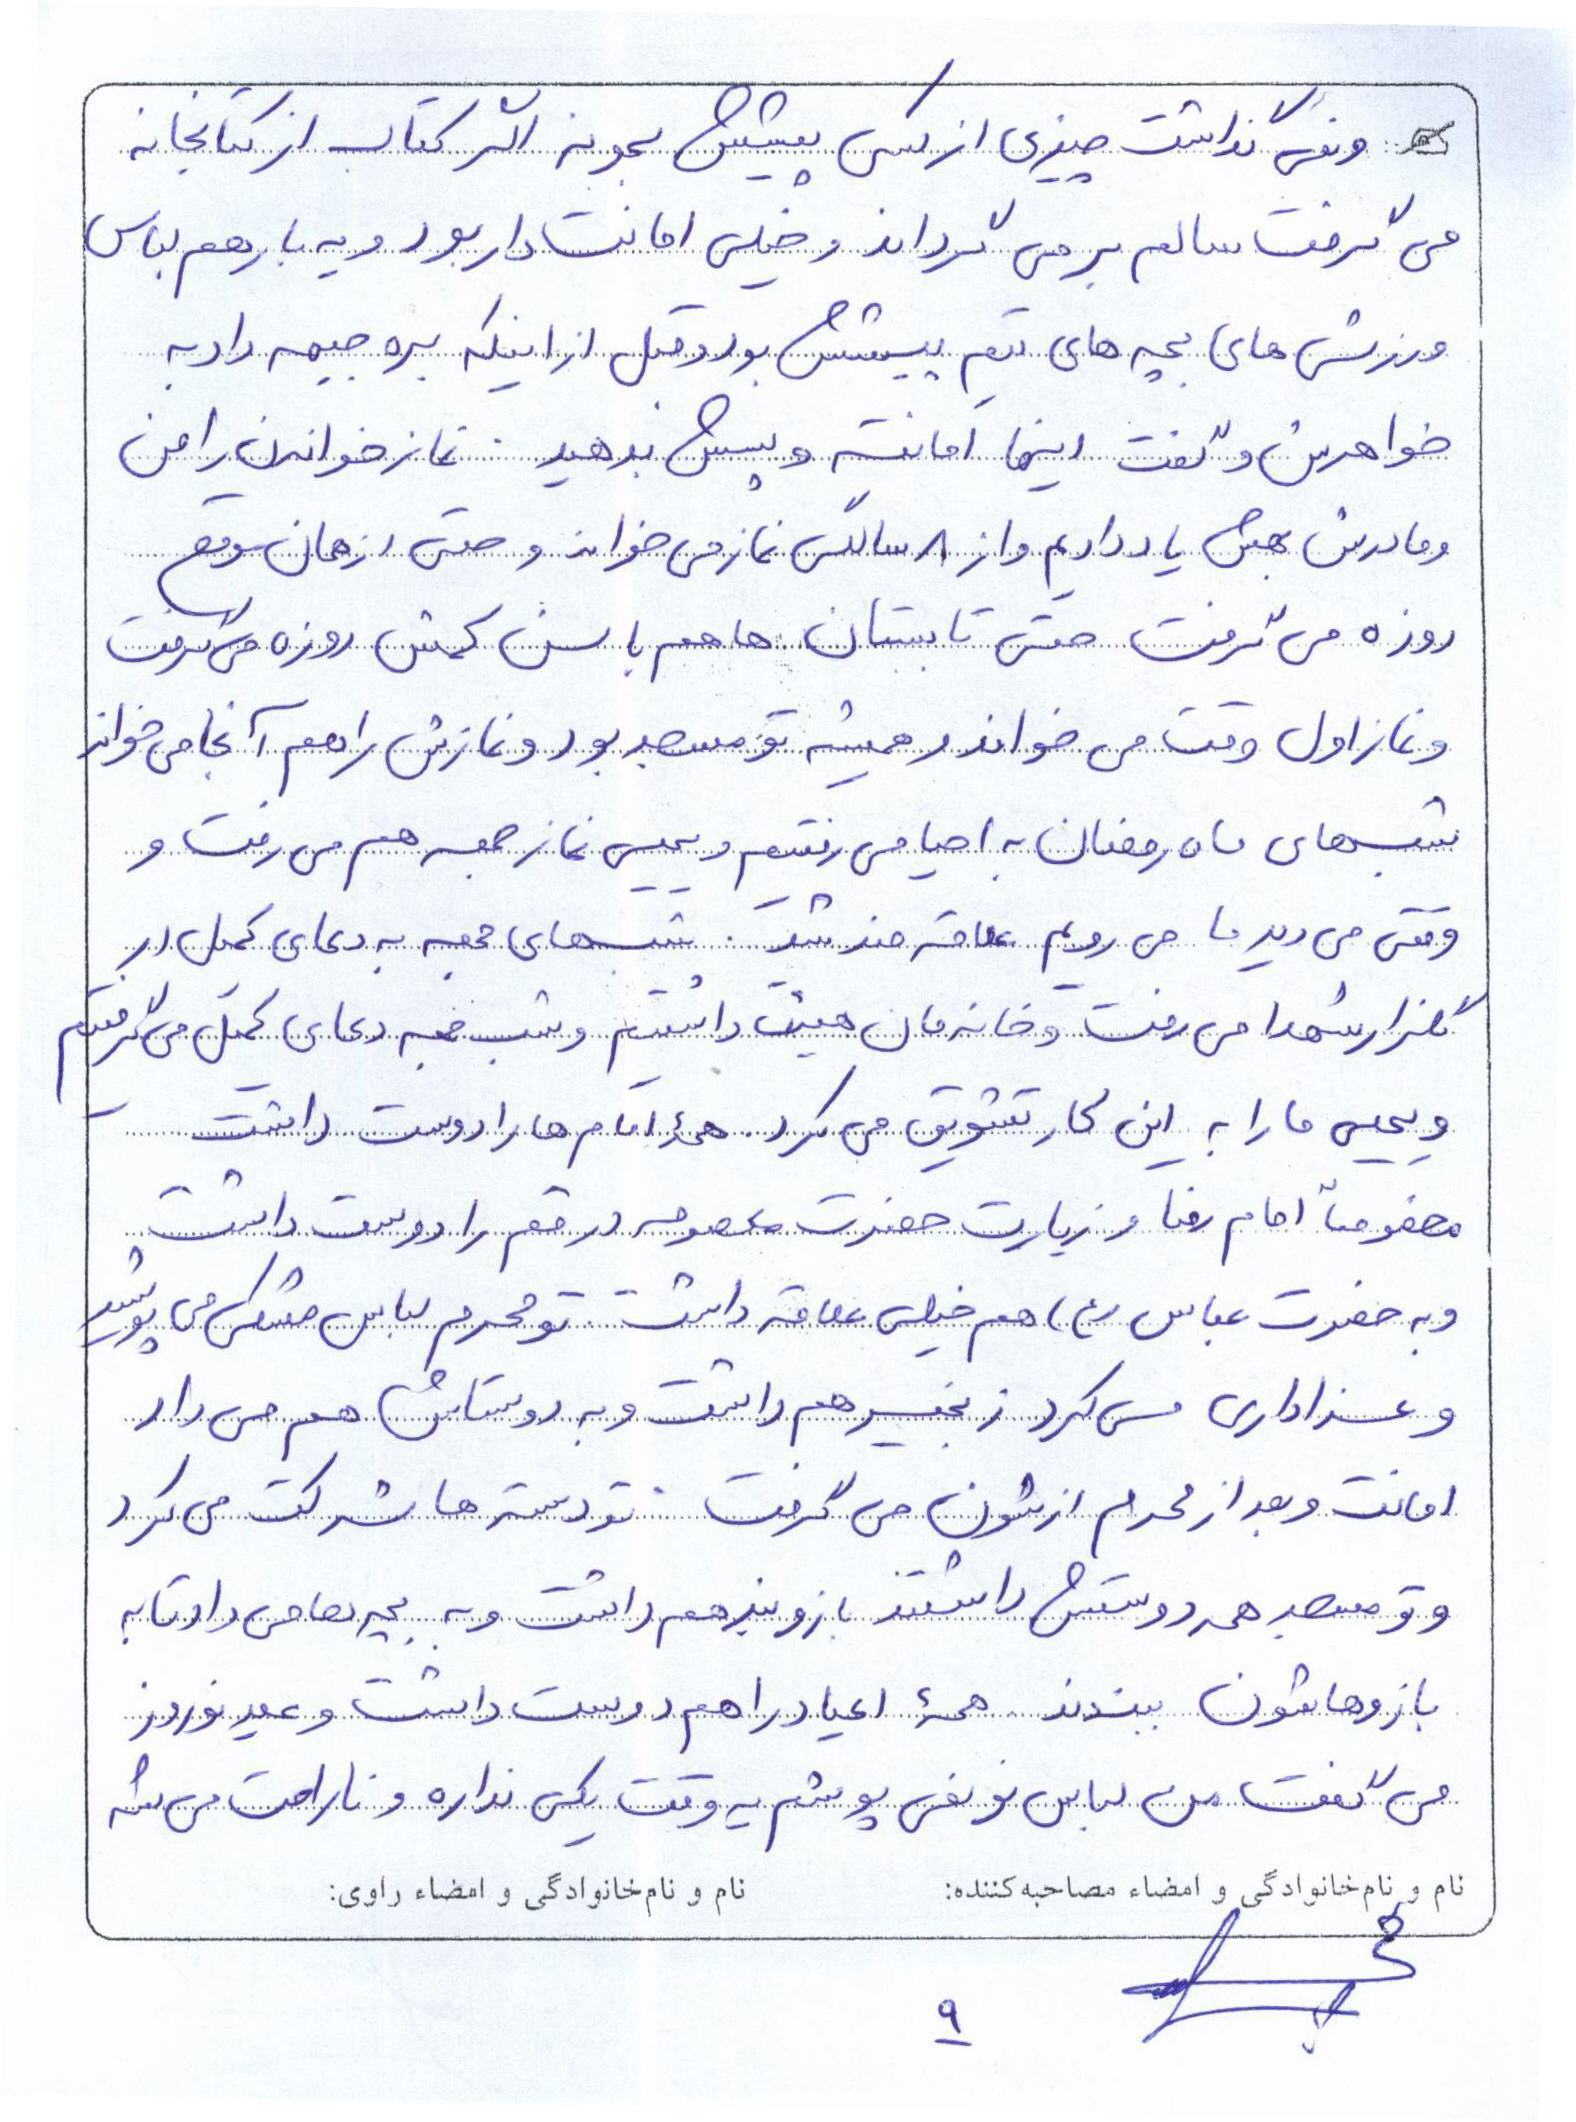 و نمی گذاشت چیزی از کسی پیشش بمونه اگر کتاب از کتابخانه
می گرفت سالم بر می گرداند و خیلی امانت دار بود و یه بار هم لباس
ورزشی های بچه های تیم پیشش بود و قبل از اینکه بره جبهه داد به
خواهرش و گفت اینها امانته و پسش بدهید . نماز خواندن را من
و مادرش بهش یاد دادیم و از ۸ سالگی نماز می خواند و حتی از همان موقع
روزه می گرفت حتی تابستان ها هم با سن کمش روزه می گرفت
و نماز اول وقت می خواند و همیشه تو مسجد بود و نمازش را هم آنجا می خواند
شبهای ماه رمضان به احیا می رفتیم و یحیی نماز جمعه هم می رفت و
وقتی می دید ما می رویم علاقه مند شد . شبهای جمعه به دعای کمیل در
گلزار شهدا می رفت و خانه مان هیئت داشتیم و شب جمعه دعای کمیل می گرفتیم
و یحیی ما را به این کار تشویق می کرد . همهٔ امام ها را دوست داشت
مخصوصاً امام رضا و زیارت حضرت معصومه در قم را دوست داشت
و به حضرت عباس (ع) هم خیلی علاقه داشت . تو محرم لباس مشکی می پوشید
و عزاداری می کرد زنجیر هم داشت و به دوستاش هم می داد
امانت و بعد از محرم ازشون می گرفت . تو دسته ها شرکت می کرد
و تو مسجد همه دوستش داشتند بازوبند هم داشت و به بچه ها می داد تا به
بازوهاشون ببندند . همهٔ اعیاد را هم دوست داشت و عید نوروز
می گفت من لباس نو نمی پوشم یه وقت یکی نداره و ناراحت می شه
نام و نام‌خانوادگی و امضاء مصاحبه‌کننده: نام و نام‌خانوادگی و امضاء راوی:
۹